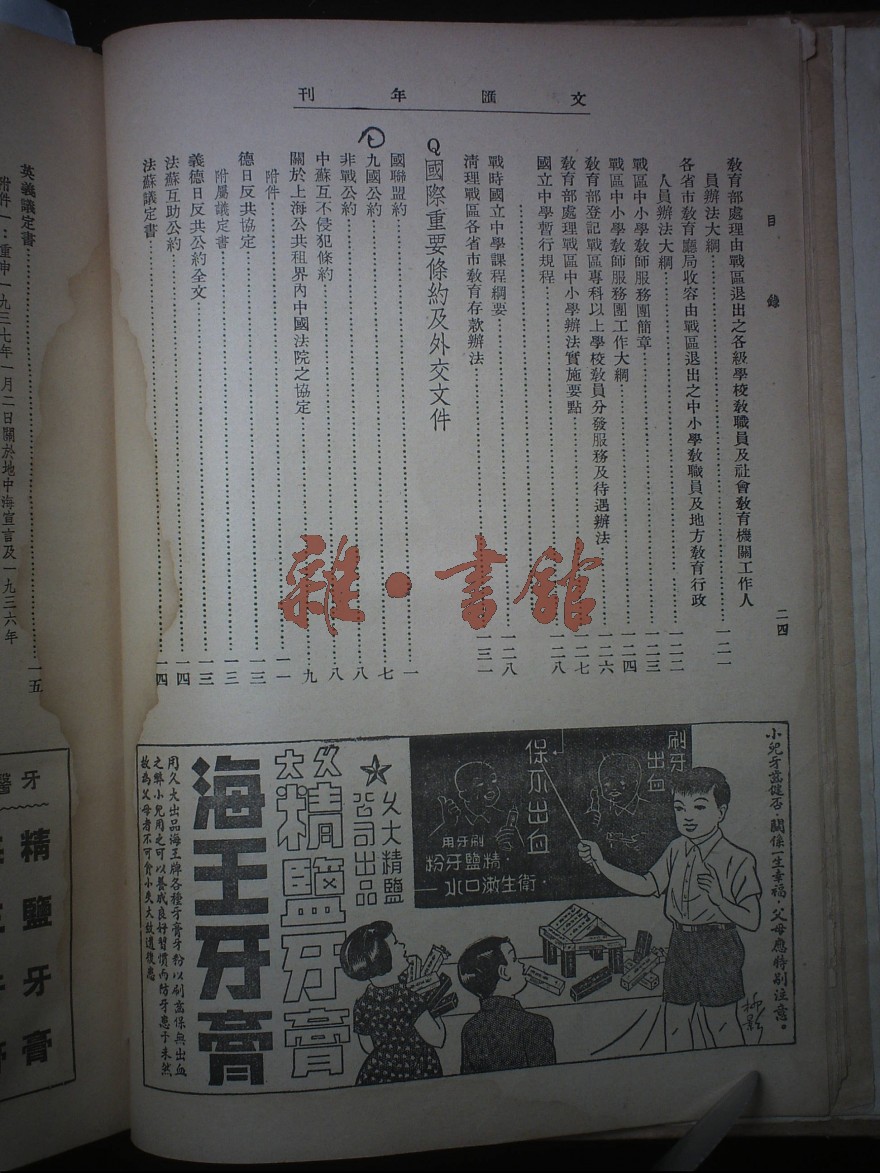 文匯年刊
目錄
二四
教育部處理由戰區退出之各級學校教職員及社會教育機關工作人
員辦法大綱……一二一
各省市教育廳局收容由戰區退出之中小學教職員及地方教育行政
人員辦法大綱……一二二
戰區中小學教師服務團簡章……一二三
戰區中小學教師服務團工作大綱……一二四
教育部登記戰區專科以上學校教員分發服務及待遇辦法……一二六
教育部處理戰區中小學辦法實施要點……一二七
國立中學暫行規程……一二八
戰時國立中學課程綱要……一二八
清理戰區各省市教育存款辦法……一三一
Q國際重要條約及外交文件
國聯盟約……一
九國公約……七
非戰公約……八
中蘇互不侵犯條約……八
關於上海公共租界內中國法院之協定……九
附件……一一
德日反共協定……一三
附屬議定書……一三
義德日反共公約全文……一三
法蘇互助公約……一四
法蘇議定書……一四
雜·書館
小兒牙齒健否·關係一生幸福·父母應特別注意。
刷牙出血
保不出血
刷牙用
精鹽牙粉·
衛生漱口水·
柳影
久大精鹽公司出品
久大精鹽牙膏
海王牙膏
用久大出品海王牌各種牙膏牙粉以刷齒保無出血
之弊小兒用之可以養成良好習慣而防牙患于未然
故為父母者不可貪小失大致遺後患
英義議定書……一五
附件一：重申一九三七年一月二日關於地中海宣言及一九三六年
牙醫
精鹽牙膏